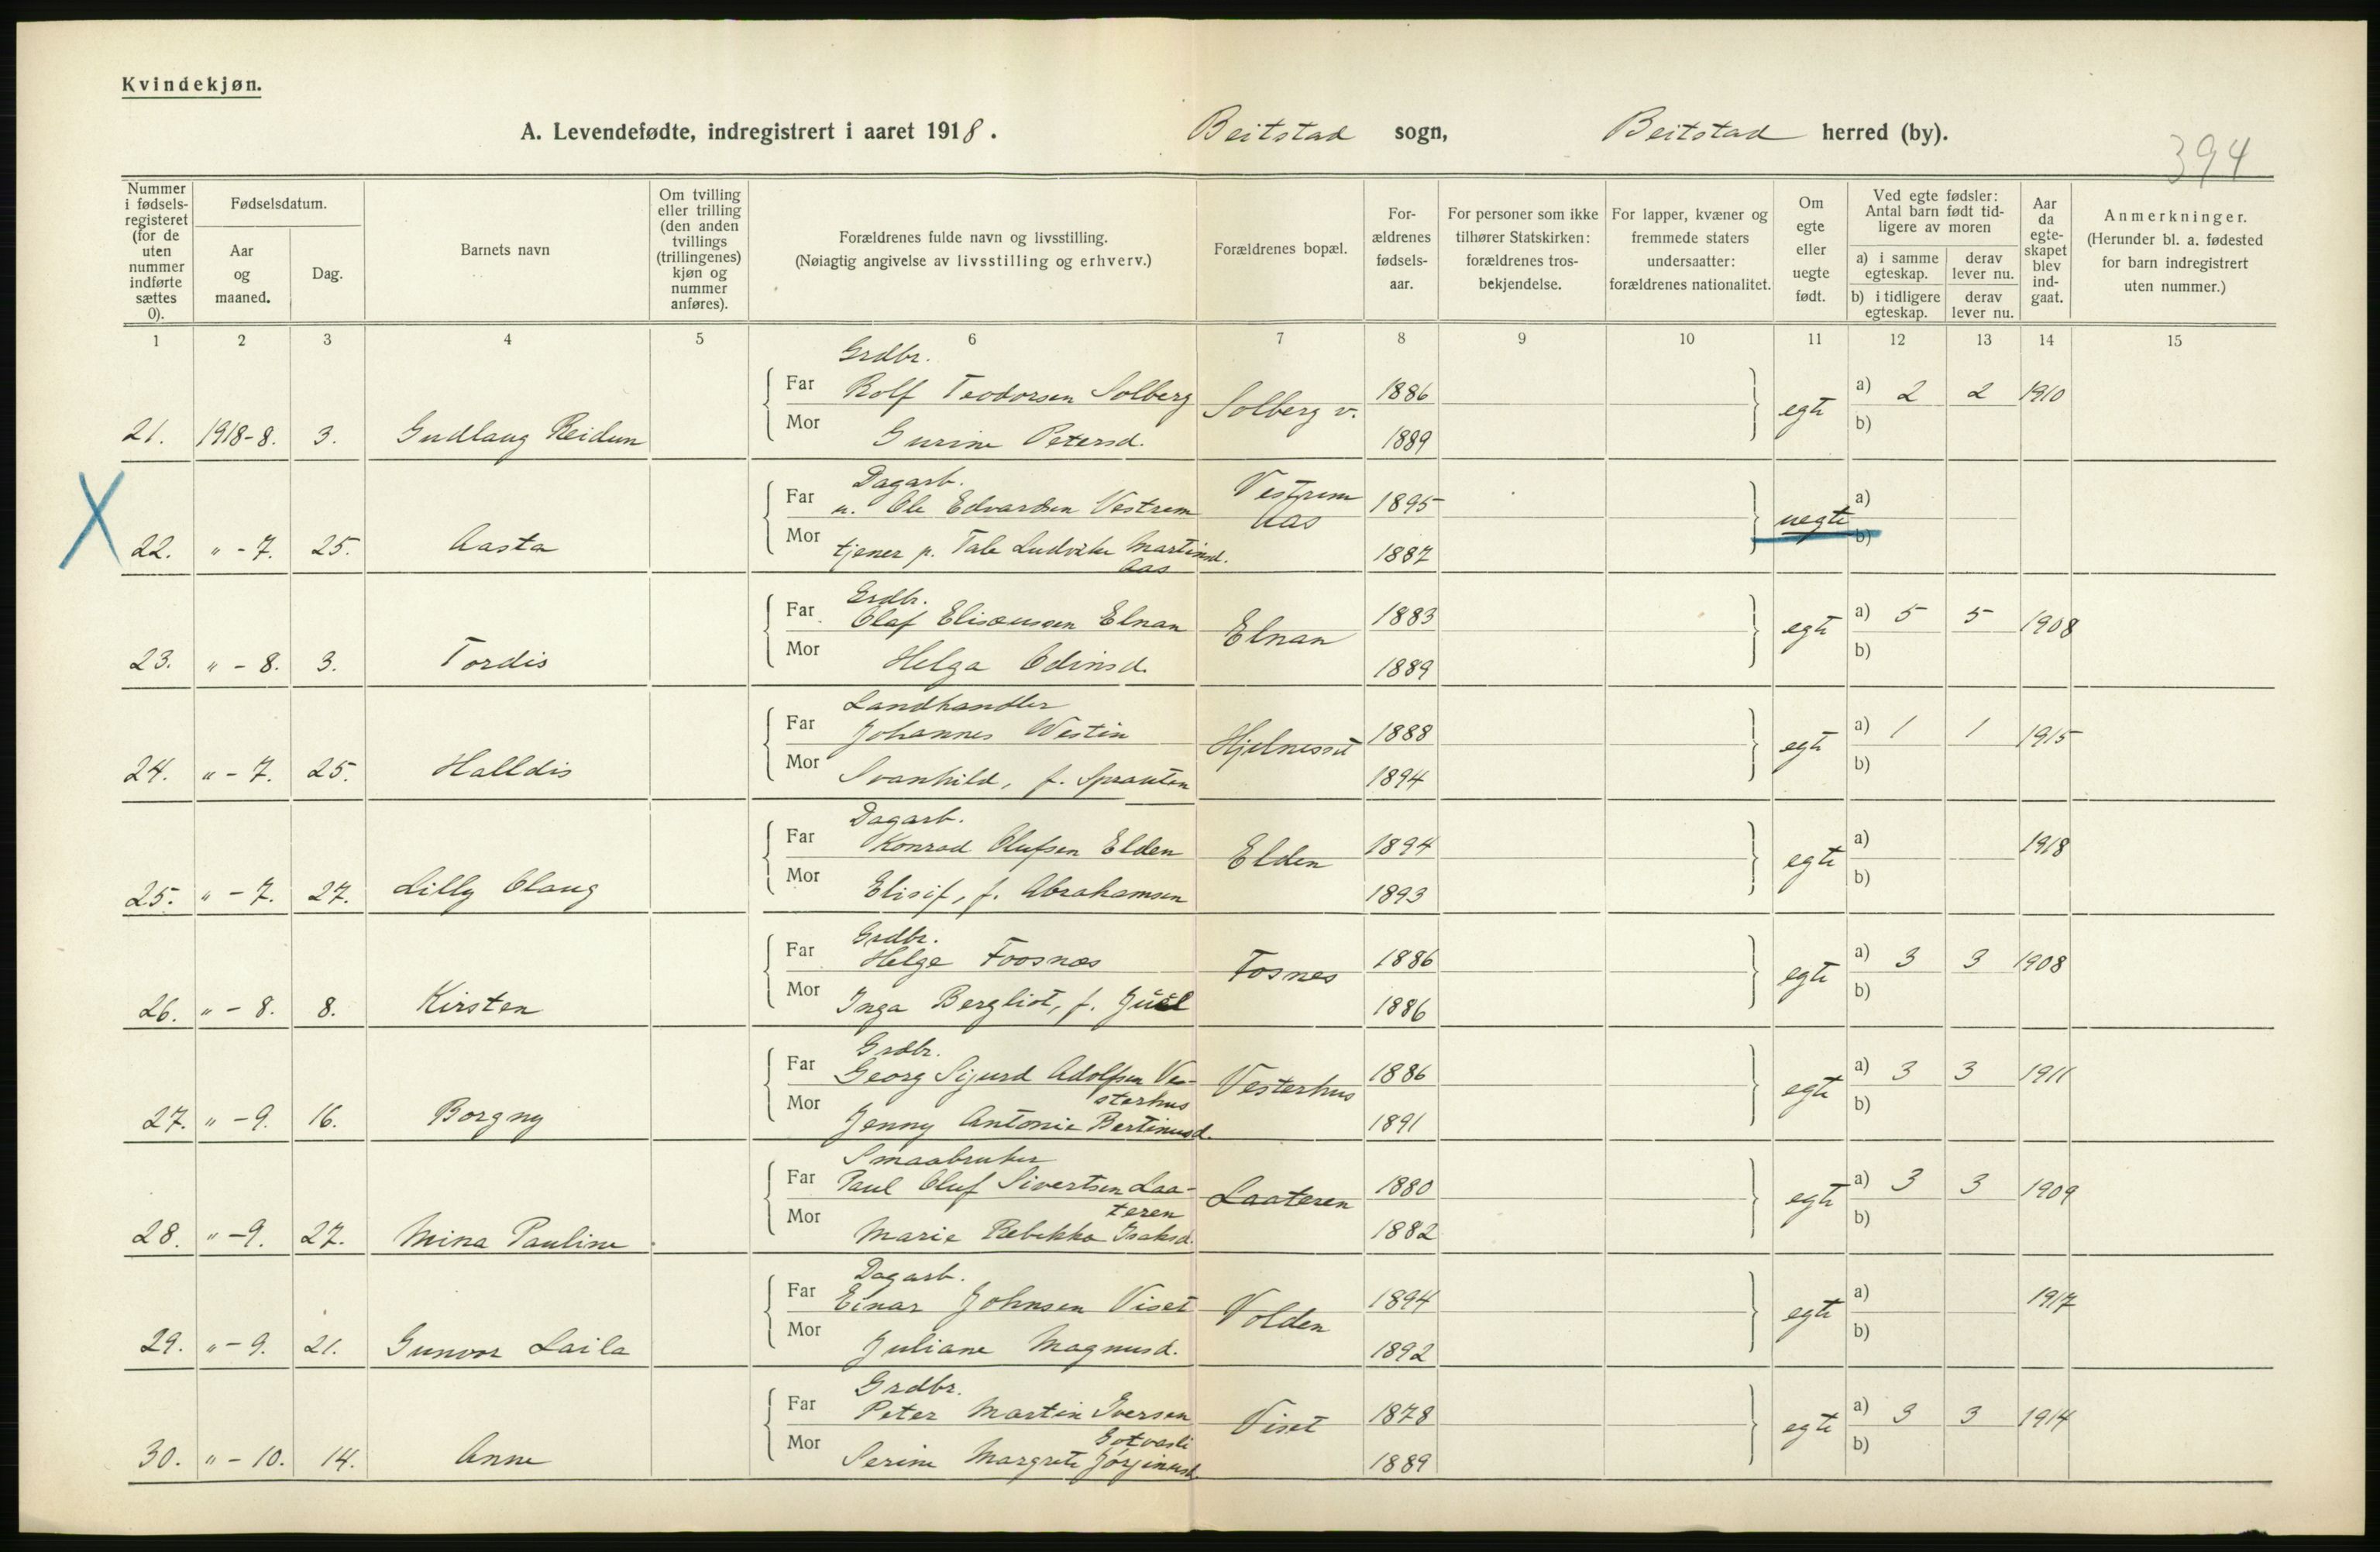 Kvindekjøn.
A. Levendefødte, indregistrert i aaret 1918. Beitstad sogn, Beitstad herred (by).
394
Nummer i fødselsregisteret (for de uten nummer indførte sættes 0).
Fødselsdatum.
Aar og maaned.
Dag.
Barnets navn
Om tvilling eller trilling (den anden tvillings (trillingenes) kjøn og nummer anføres).
Forældrenes fulde navn og livsstilling.
(Nøiagtig angivelse av livsstilling og erhverv.)
Forældrenes bopæl.
Forældrenes fødselsaar.
For personer som ikke tilhører Statskirken: forældrenes trosbekjendelse.
For lapper, kvæner og fremmede staters undersaatter: forældrenes nationalitet.
Om egte eller uegte født.
Ved egte fødsler: Antal barn født tidligere av moren
a) i samme egteskap.
derav lever nu.
b) i tidligere egteskap.
derav lever nu.
Aar da egteskapet blev indgaat.
Anmerkninger.
(Herunder bl. a. fødested for barn indregistrert uten nummer.)
1 2 3 4 5 6 7 8 9 10 11 12 13 14 15
Grdbr.
Far Rolf Teodorsen Solberg Solberg v. 1886 a) 2 2 1910
21. 1918-8. 3. Gudlaug Reidun Mor Gurine Petersd. 1889 egte b)
Dagarb.
Far u. Ole Edvardsen Vestrem Vestrem 1895 a)
Aas
X 22. " - 7. 25. Aasta Mor tjener p. Tale Ludvikke Martinsd. 1887 uegte b)
Aas
Grdbr.
Far Olaf Elisæussen Elnan Elnan 1883 a) 5 5 1908
23. " - 8. 3. Tordis Mor Helga Odinsd. 1889 egte b)
Landhandler
Far Johannes Westin Hjelnesset 1888 a) 1 1 1915
24. " - 7. 25. Halldis Mor Svanhild, f. Sprauten 1894 egte b)
Dagarb.
Far Konrad Olufsen Elden Elden 1894 a) 1918
25. " - 7. 27. Lilly Olaug Mor Elisif, f. Abrahamsen 1893 egte b)
Grdbr.
Far Helge Foosnæs Fosnes 1886 a) 3 3 1908
26. " - 8. 8. Kirsten Mor Inga Bergliot, f. Juel 1886 egte b)
Grdbr.
Far Georg Sigurd Adolfsen Ve- Vesterhus 1886 a) 3 3 1911
sterhus
27. " - 9. 16. Borgny Mor Jenny Antonie Bertinusd. 1891 egte b)
Smaabruker
Far Paul Oluf Sivertsen Laa- Laateren 1880 a) 3 3 1909
teren
28. " - 9. 27. Mina Pauline Mor Marie Rebekka Isaksd. 1882 egte b)
Dagarb.
Far Einar Johnsen Viset Volden 1894 a) 1917
29. " - 9. 21. Gunvor Laila Mor Juliane Magnusd. 1892 egte b)
Grdbr.
Far Peter Martin Iversen Viset 1878 a) 3 3 1914
30. " - 10. 14. Anne Mor Serine Margrete Jørginusd. 1889 egte b)